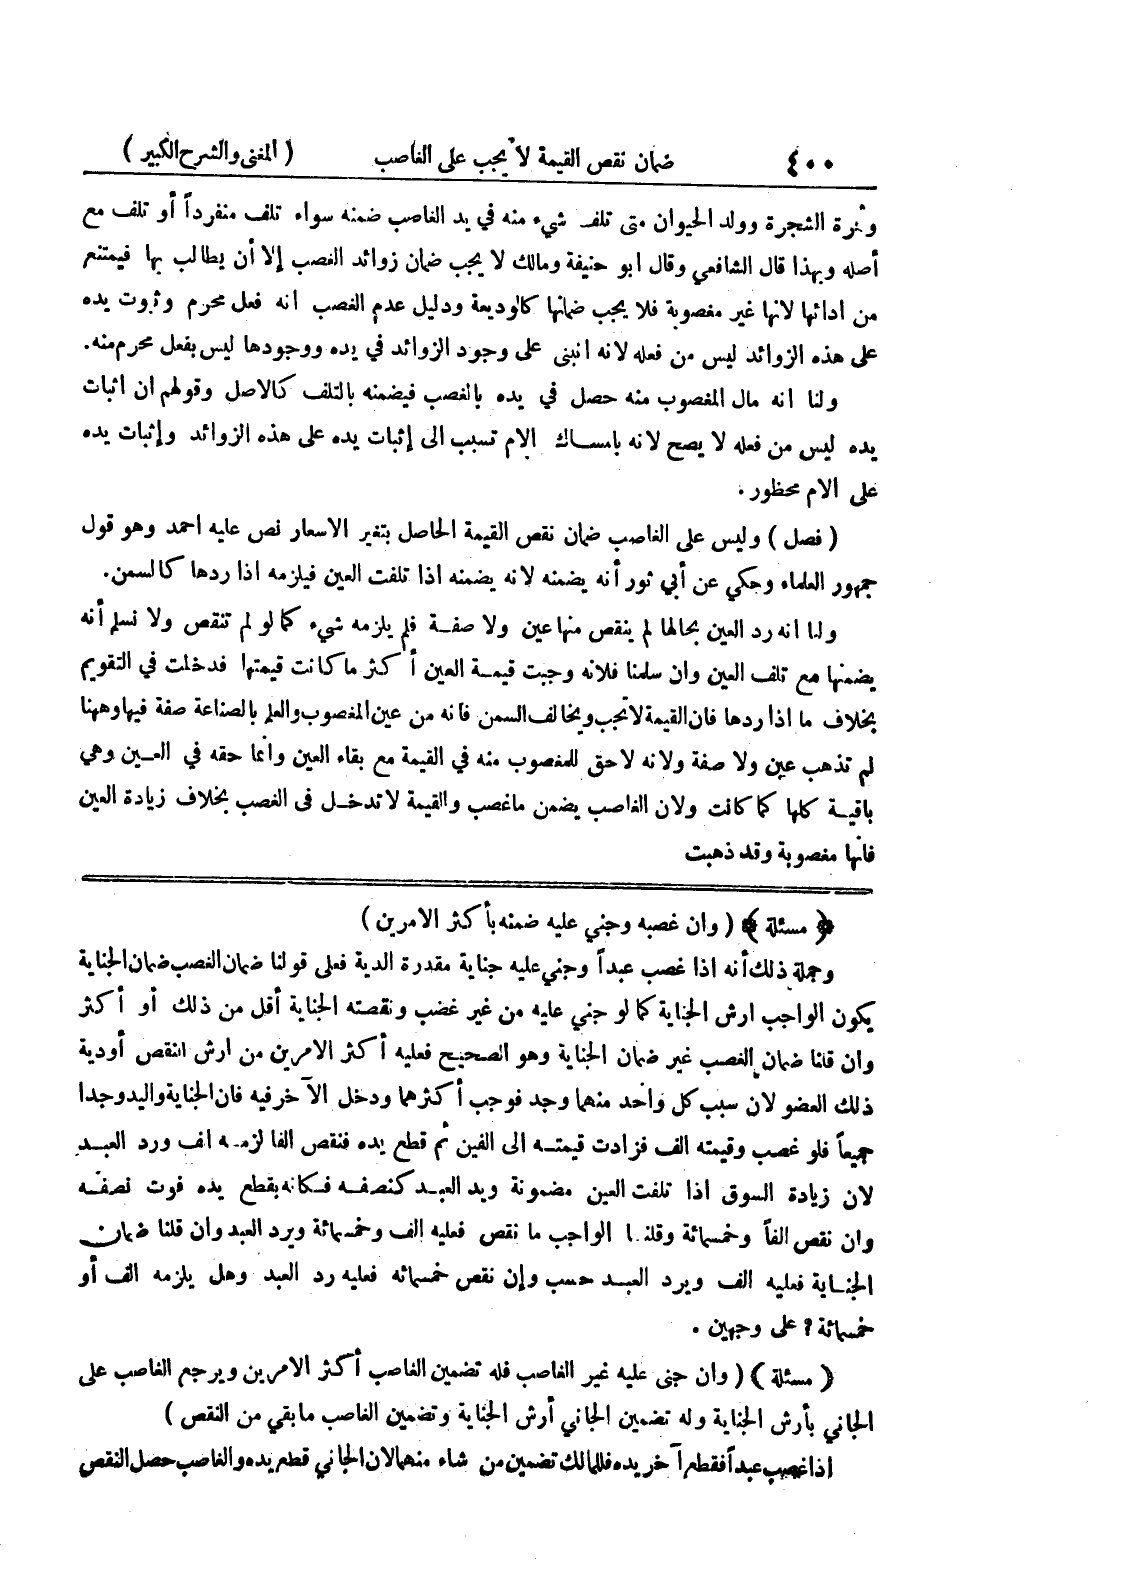 ٤٠٠ ضمان نقص القيمة لا يجب على الغاصب ( المغني والشرح الكبير )
وثمرة الشجرة وولد الحيوان متى تلف شيء منه في يد الغاصب ضمنه سواء تلف منفرداً أو تلف مع
أصله وبهذا قال الشافعي وقال ابو حنيفة ومالك لا يجب ضمان زوائد الغصب إلا أن يطالب بها فيمتنع
من ادائها لانها غير مغصوبة فلا يجب ضمانها كالوديعة ودليل عدم الغصب انه فعل محرم وثبوت يده
على هذه الزوائد ليس من فعله لانه انبنى على وجود الزوائد في يده ووجودها ليس بفعل محرم منه.
ولنا انه مال المغصوب منه حصل في يده بالغصب فيضمنه بالتلف كالاصل وقولهم ان اثبات
يده ليس من فعله لا يصح لانه بامساك الام تسبب الى إثبات يده على هذه الزوائد وإثبات يده
على الام محظور .
( فصل ) وليس على الغاصب ضمان نقص القيمة الحاصل بتغير الاسعار نص عليه احمد وهو قول
جمهور العلماء وحكي عن أبي ثور أنه يضمنه لانه يضمنه اذا تلفت العين فيلزمه اذا ردها كالسمن.
ولنا انه رد العين بحالها لم ينقص منها عين ولا صفة فلم يلزمه شيء كما لو لم تنقص ولا نسلم أنه
يضمنها مع تلف العين وان سلمنا فلانه وجبت قيمة العين أكثر ما كانت قيمتها فدخلت في التقويم
بخلاف ما اذا ردها فان القيمة لا تجب ويخالف السمن فانه من عين المغصوب والعلم بالصناعة صفة فيها وههنا
لم تذهب عين ولا صفة ولانه لا حق للمغصوب منه في القيمة مع بقاء العين وانما حقه في العين وهي
باقية كلها كما كانت ولان الغاصب يضمن ما غصب والقيمة لا تدخل في الغصب بخلاف زيادة العين
فانها مغصوبة وقد ذهبت
﴿ مسئلة ﴾ ( وان غصبه وجني عليه ضمنه بأكثر الامرين )
وجملة ذلك أنه اذا غصب عبداً وجني عليه جناية مقدرة الدية فعلى قولنا ضمان الغصب ضمان الجناية
يكون الواجب ارش الجناية كما لو جني عليه من غير غضب ونقصته الجناية أقل من ذلك أو أكثر
وان قلنا ضمان الغصب غير ضمان الجناية وهو الصحيح فعليه أكثر الامرين من ارش النقص أو دية
ذلك العضو لان سبب كل واحد منهما وجد فوجب أكثرهما ودخل الآخر فيه فان الجناية واليد وجدا
جميعاً فلو غصب وقيمته الف فزادت قيمته الى الفين ثم قطع يده فنقص الفا لزمه الف ورد العبد
لان زيادة السوق اذا تلفت العين مضمونة ويد العبد كنصفه فكانه بقطع يده فوت نصفه
وان نقص الفاً وخمسمائة وقلنا الواجب ما نقص فعليه الف وخمسمائة ويرد العبد وان قلنا ضمان
الجناية فعليه الف ويرد العبد حسب وإن نقص خمسمائه فعليه رد العبد وهل يلزمه الف أو
خمسمائة ؟ على وجهين .
( مسئلة ) ( وان جنى عليه غير الغاصب فله تضمين الغاصب أكثر الامرين ويرجع الغاصب على
الجاني بأرش الجناية وله تضمين الجاني أرش الجناية وتضمين الغاصب ما بقي من النقص )
اذا غصب عبداً فقطع آخر يده فللمالك تضمين من شاء منهما لان الجاني قطع يده والغاصب حصل النقص